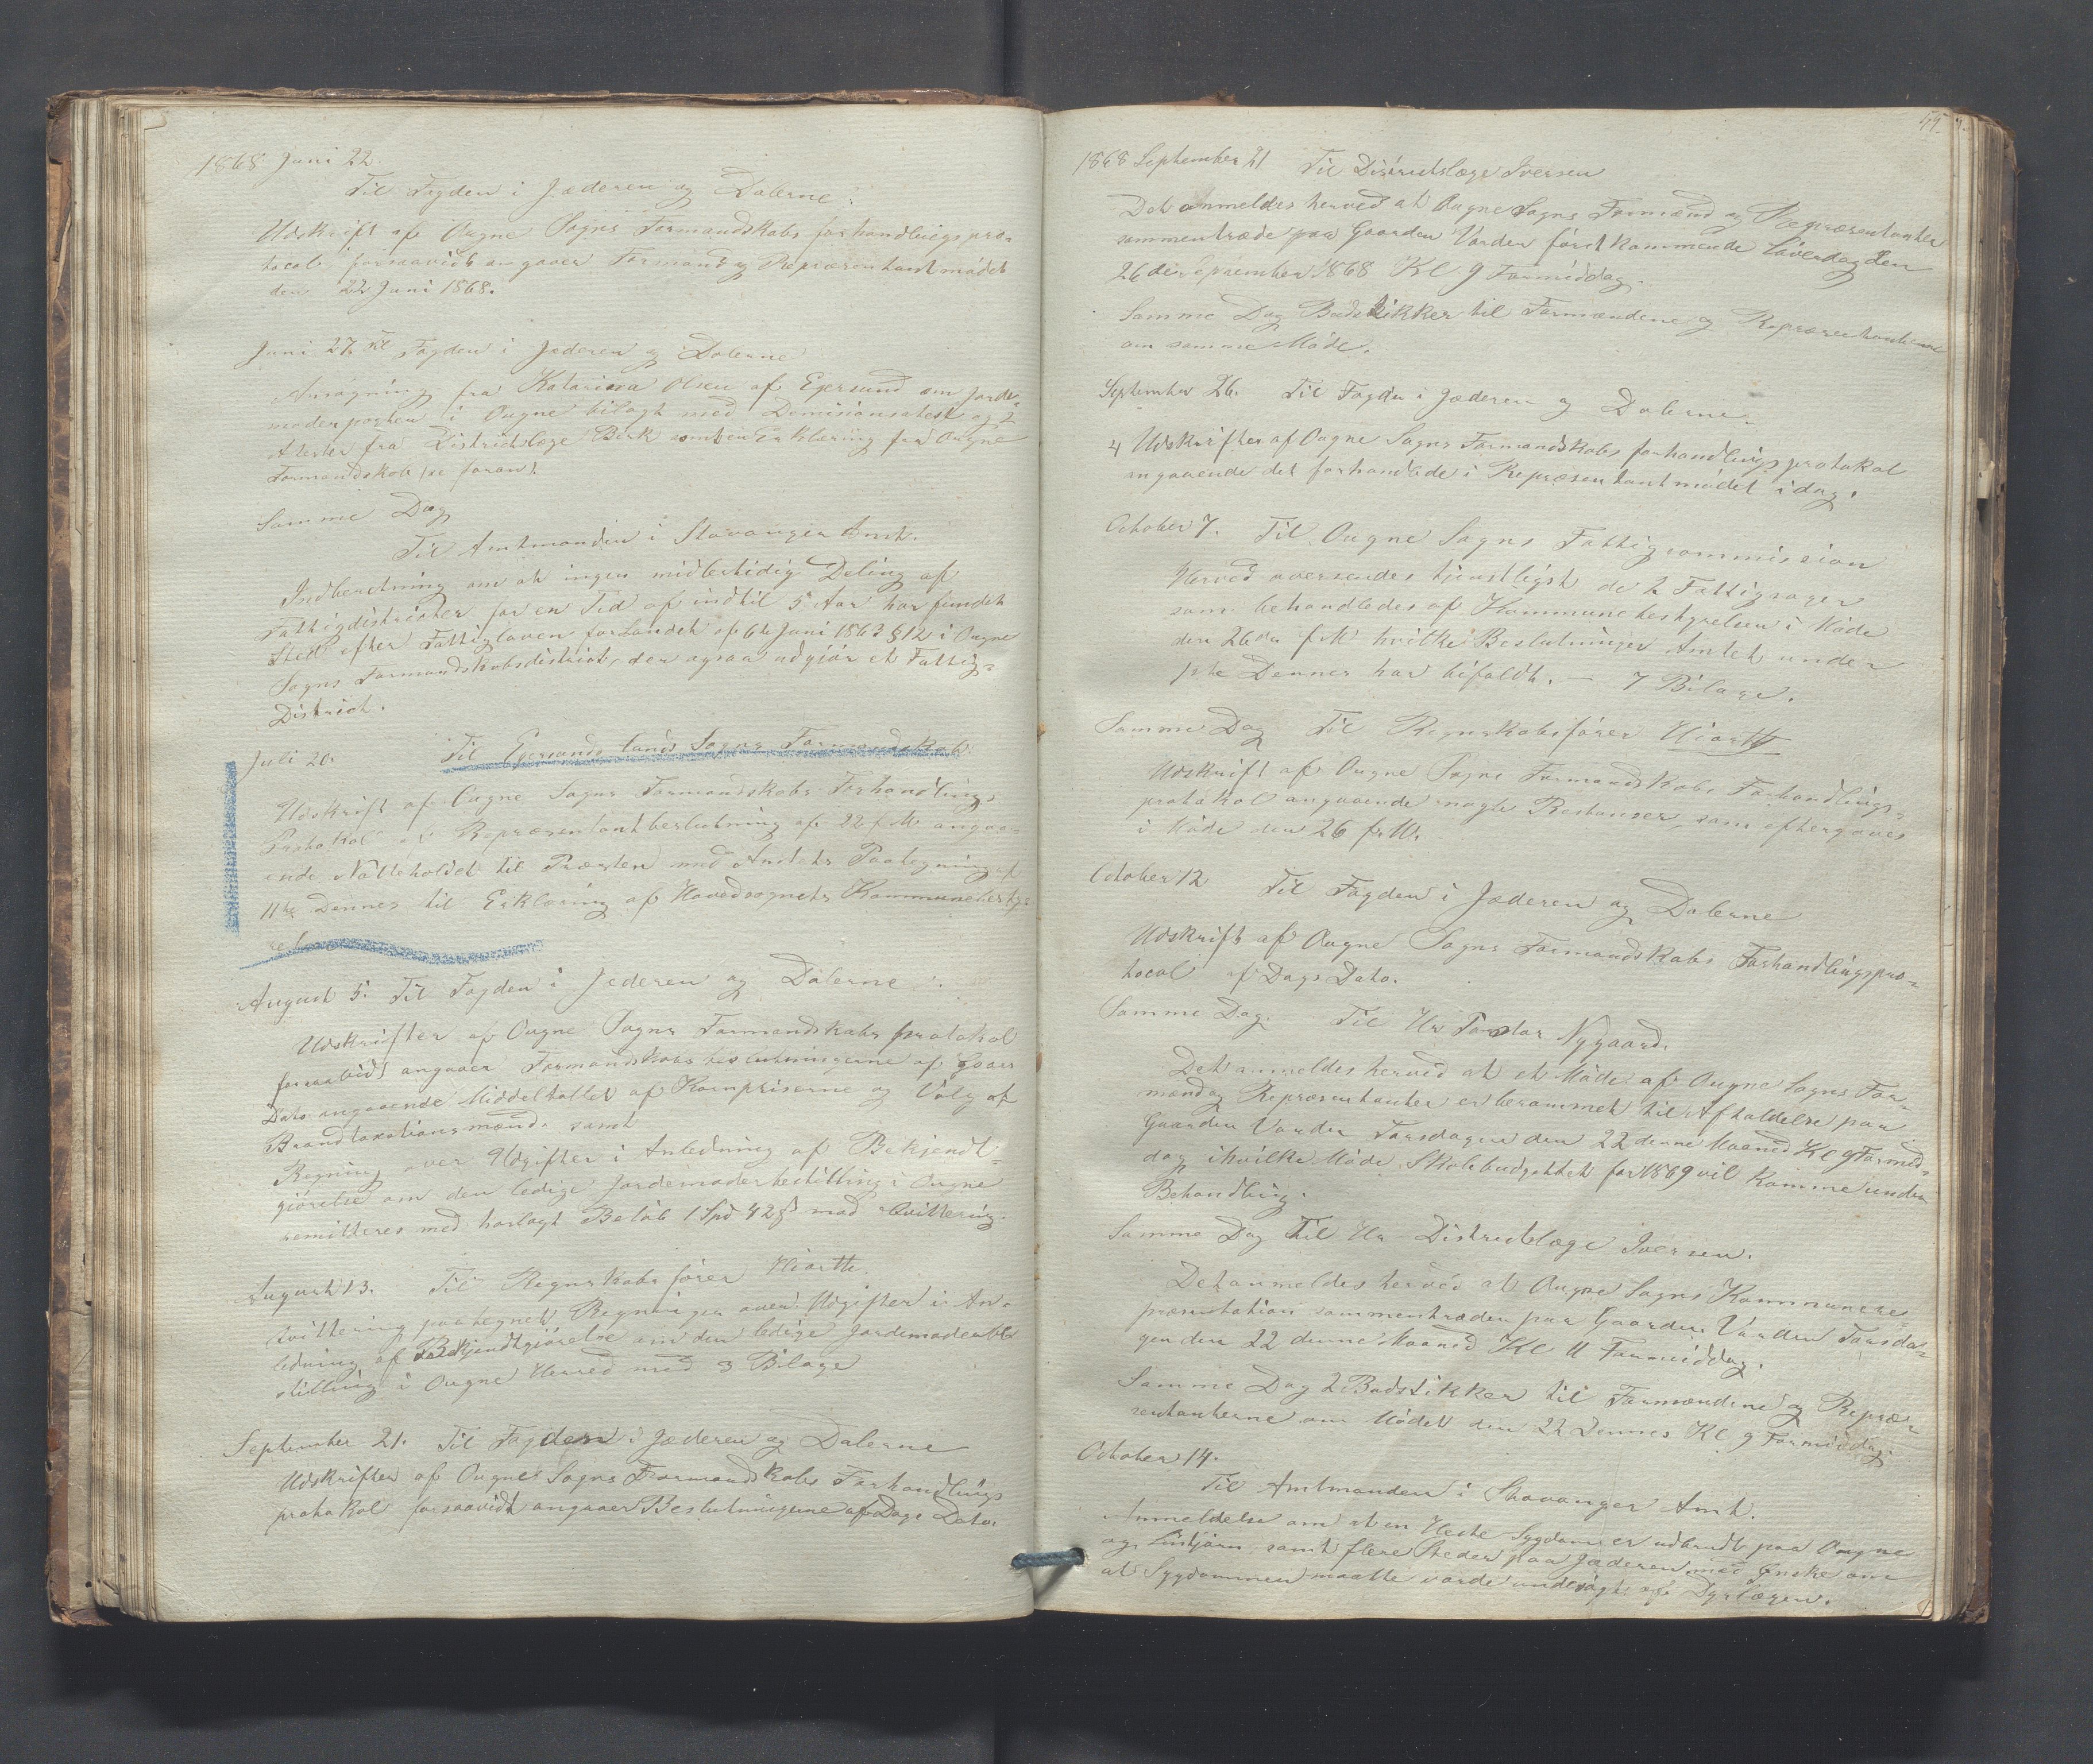 1868 Juni 22.
Til Fogden i Jæderen og Dalerne.
Udskrift af Ougne Sogns Formandskabs forhandlingspro-
tocol forsaavidt angaaer Formand og Repræsentantmødet
den 22 Juni 1868.
Juni 27. Til Fogden i Jæderen og Dalerne
Ansøgning fra Katarina Olsen af Egersund om Jorde-
moderposten i Ougne bilagt med Demisionsatest og 2
Atester fra Districtslæge Birk samt en Erklæring fra Ougne
Formandskab (se foran).
Samme Dag
Til Amtmanden i Stavanger Amt.
Indberetning om at ingen midlertidig Deling af
Fattigdistricter for en Tid af indtil 5 Aar har fundet
Sted efter Fattigloven for Landet af 6te Juni 1863 § 12 i Ougne
Sogns Formandskabsdistrict, der ogsaa udgjør et Fattig-
District.
Juli 20. Til Egersunds lands Sogns Formandskab.
Udskrift af Ougne Sogns Formandskabs Forhandlings
Protokol af Repræsentantbeslutning af 22 f. M. angaa-
ende Natteholdet til Præsten med Amtets Paategning af
11te Dennes til Erklæring af Hovedsognets Kommunebesty-
relse
August 5. Til Fogden i Jæderen og Dalerne.
Udskrifter af Ougne Sogns Formandskabs protokol
forsaavidt angaaer Formandskabs beslutningerne af Gaars
Dato angaaende Middeltallet af Kornpriserne og Valg af
Brandtaxationsmænd. samt
Regning over Udgifter i Anledning af Bekjendt-
gjørelse om den ledige Jordemoderbestilling i Ougne
remitteres med havlagt Beløb 1 Spd 42 ß mod Qvittering.
August 13. Til Regnskabsfører Hiorth.
Qvittering paategnet Regninger over Udgifter i An-
ledning af Bekjendtgjørelse om den ledige Jordemoderbe-
stilling i Ougne Herred med 3 Bilage
September 21. Til Fogden i Jæderen og Dalerne
Udskrifter af Ougne Sogns Formandskabs Forhandlings
protokol forsaavidt angaaer Beslutningerne af Dags Dato.
44.
1868 September 21 Til Districtslæge Iversen
Det anmeldes herved at Ougne Sogns Formænd og Repræsentanter
sammentræde paa Gaarden Varden førstkommende Løverdag den
26de September 1868 Kl 9 Formiddag.
Samme Dag Budstikker til Formændene og Repræsentanterne
om samme Møde.
September 26. Til Fogden i Jæderen og Dalerne.
4 Udskrifter af Ougne Sogns Formandskabs forhandlingsprotokol
angaaende det forhandlede i Repræsentantmødet idag.
October 7. Til Ougne Sogns Fattigcommission
Herved oversendes tjenstligst de 2 Fattigsager
som behandledes af Kommunebestyrelsen i Møde
den 26de f. M. hvilke Beslutninger Amtet under
1ste Dennes har bifaldt. – 7 Bilage.
Samme Dag Til Regnskabsfører Hiorth
Udskrift af Ougne Sogns Formandskabs Forhandlings-
protokol angaaende nogle Restanser, som eftergaves
i Møde den 26 f. M.
October 12 Til Fogden i Jæderen og Dalerne
Udskrift af Ougne Sogns Formandskabs Forhandlingspro-
tocol af Dags Dato.
Samme Dag. Til Hr Pastor Nygaard.
Det anmeldes herved at et Møde af Ougne Sogns For-
mænd og Repræsentanter er berammet til Afholdelse paa
Gaarden Varden Torsdagen den 22 denne Maaned Kl 9 Formid-
dag i hvilke Møde Skolebudgettet for 1869 vil komme under
Behandling.
Samme Dag Til Hr Districtslæge Iversen.
Det anmeldes herved at Ougne Sogns Kommunere-
præsentation sammentræder paa Gaarden Varden Torsda-
gen den 22 denne Maaned Kl 11 Formiddag.
Samme Dag 2 Budstikker til Formændene og Repræ-
sentanterne om Mødet den 22 Dennes Kl 9 Formiddag.
October 14.
Til Amtmanden i Stavanger Amt.
Anmeldelse om at en Heste Sygdom er udbrudt paa Ougne
og samt flere Steder paa Jæderen med Ønske om
at Sygdommen maatte vorde undersøgt af Dyrlægen.